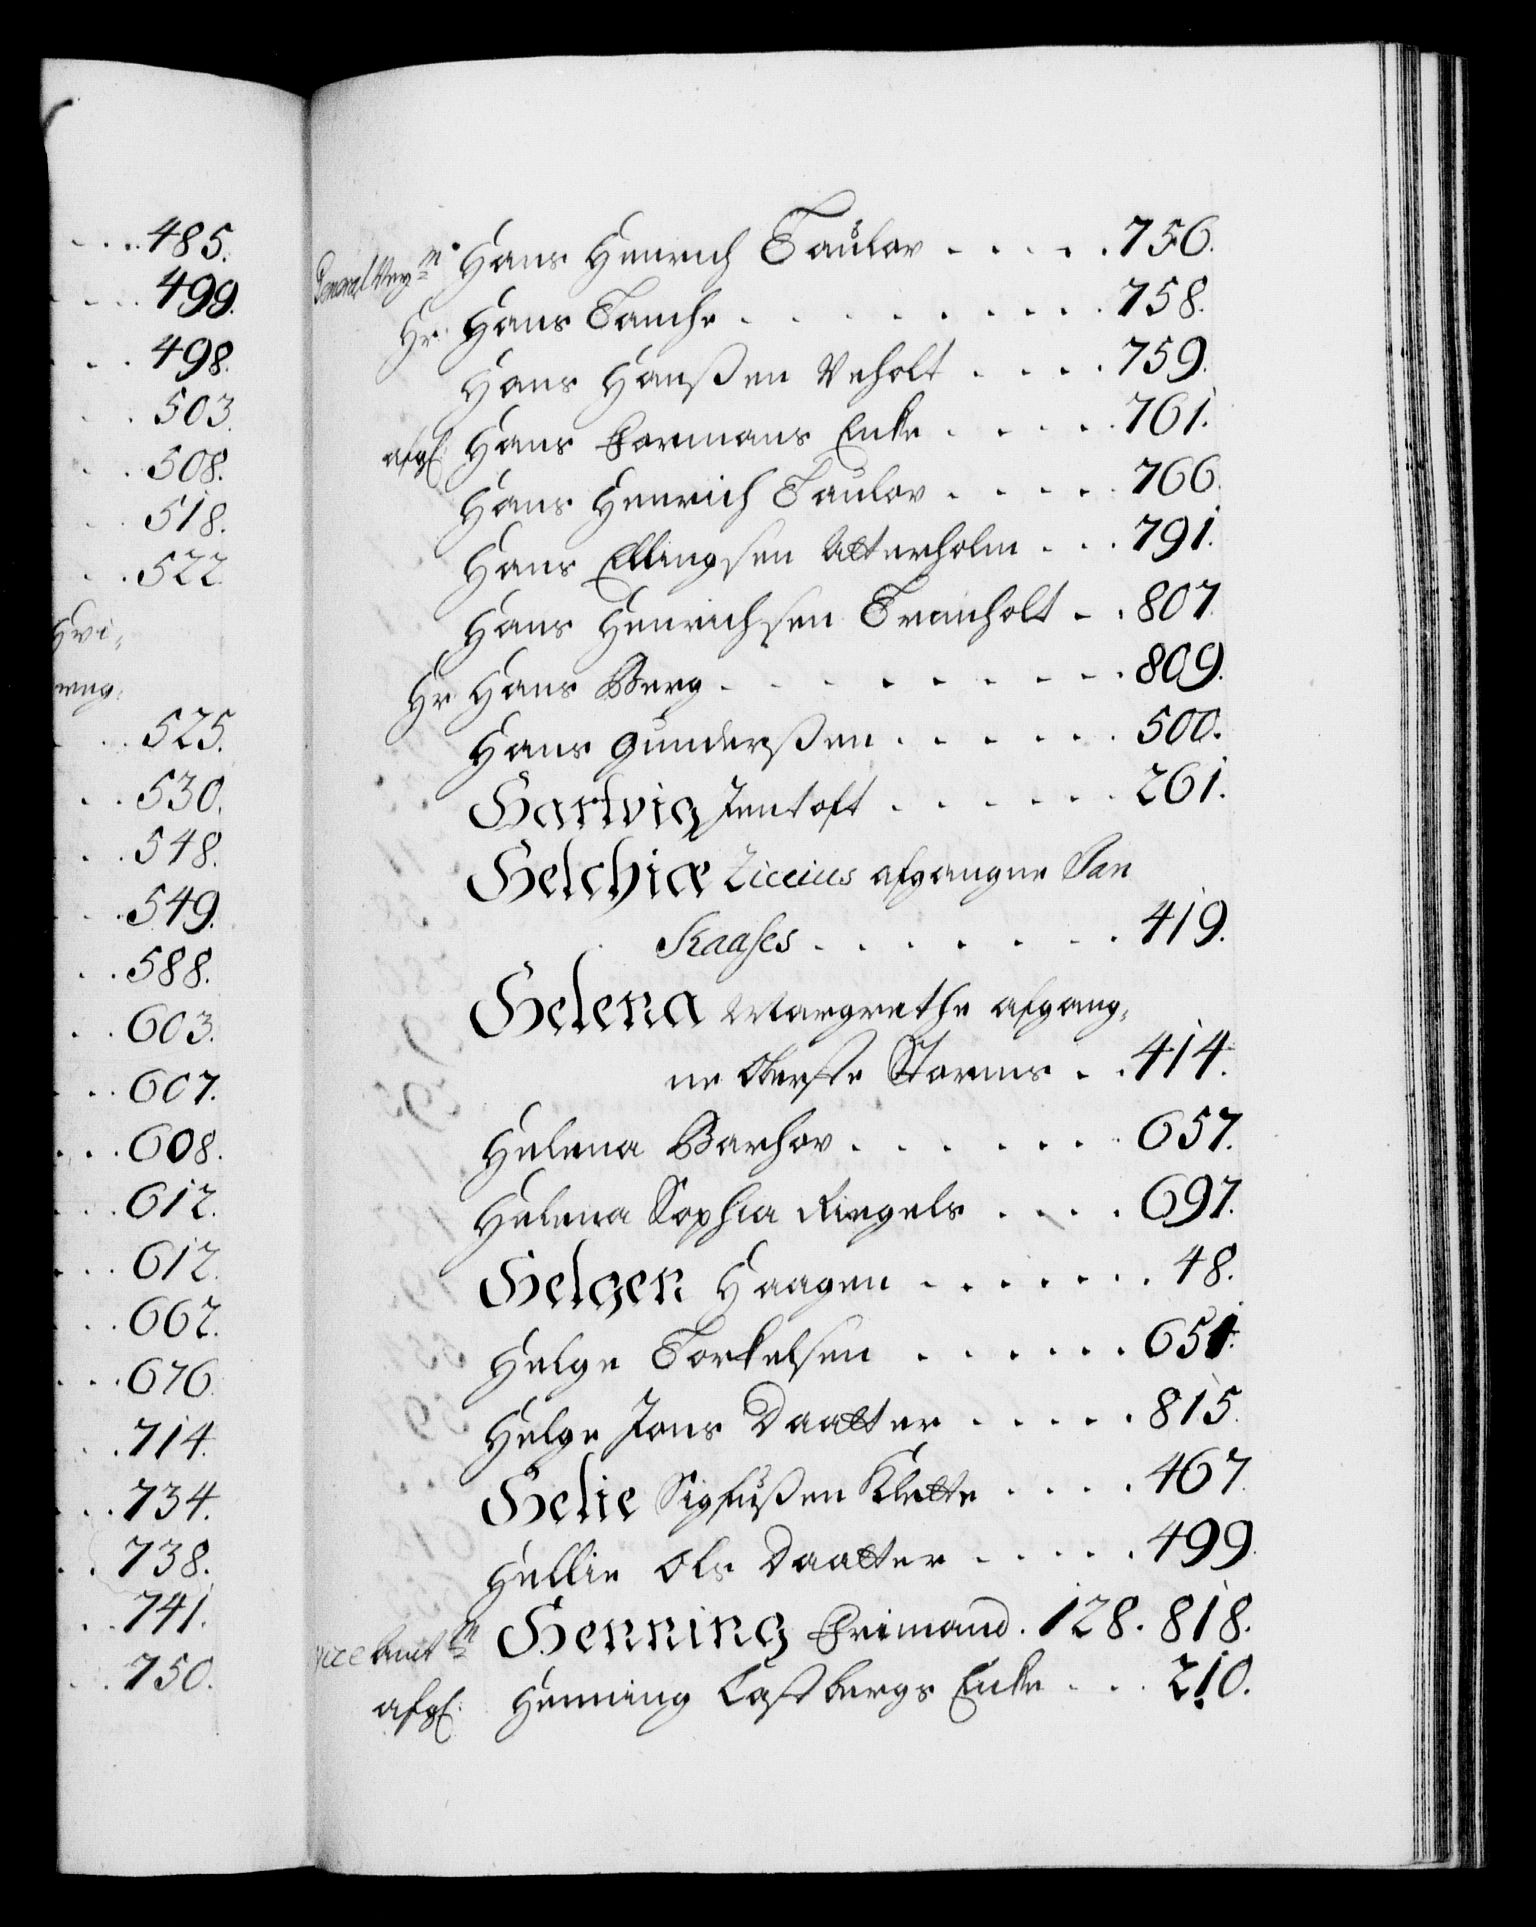 485.
499.
498.
503.
508.
518.
522.
525.
530.
548.
549.
588.
603.
607.
608.
612.
612.
667.
676.
714.
734.
738.
741.
750.
Hans Henrich Taulov . . . . . 756.
Hr: Hans Tanche . . . . . . . . 758.
Hans Hanßen Veholt . . . . 759.
afg: Hans Formans Enke . . . . . 761.
Hans Henrich Taulov . . . . . 766.
Hans Ellingsen Atterholm . . . 791.
Hans Henrichsen Tranholt . . 807.
Hr Hans Berg . . . . . . . . 809.
Hans Gunderßen . . . . . . 500.
Hartvig Jentoft . . . . . . 261.
Helchiæ afgangne Jan
Kaases . . . . . . . 419.
Helena Margrethe afgang,
ne Oberste Storms . . 414.
Helena Barhov . . . . . . . 657.
Helena Sophia Ringels . . . . 697.
Helgen Haagen . . . . . . . 48.
Helge Torkelsen . . . . . . 651.
Helge Jons Daatter . . . . . 815.
Helie Sigfußen Klette . . . . 467.
Hellie Ols Daatter . . . . . 499.
Vice Amt m Henning Frimand . 128. 818.
afg: Henning Castbergs Enke . . . 210.